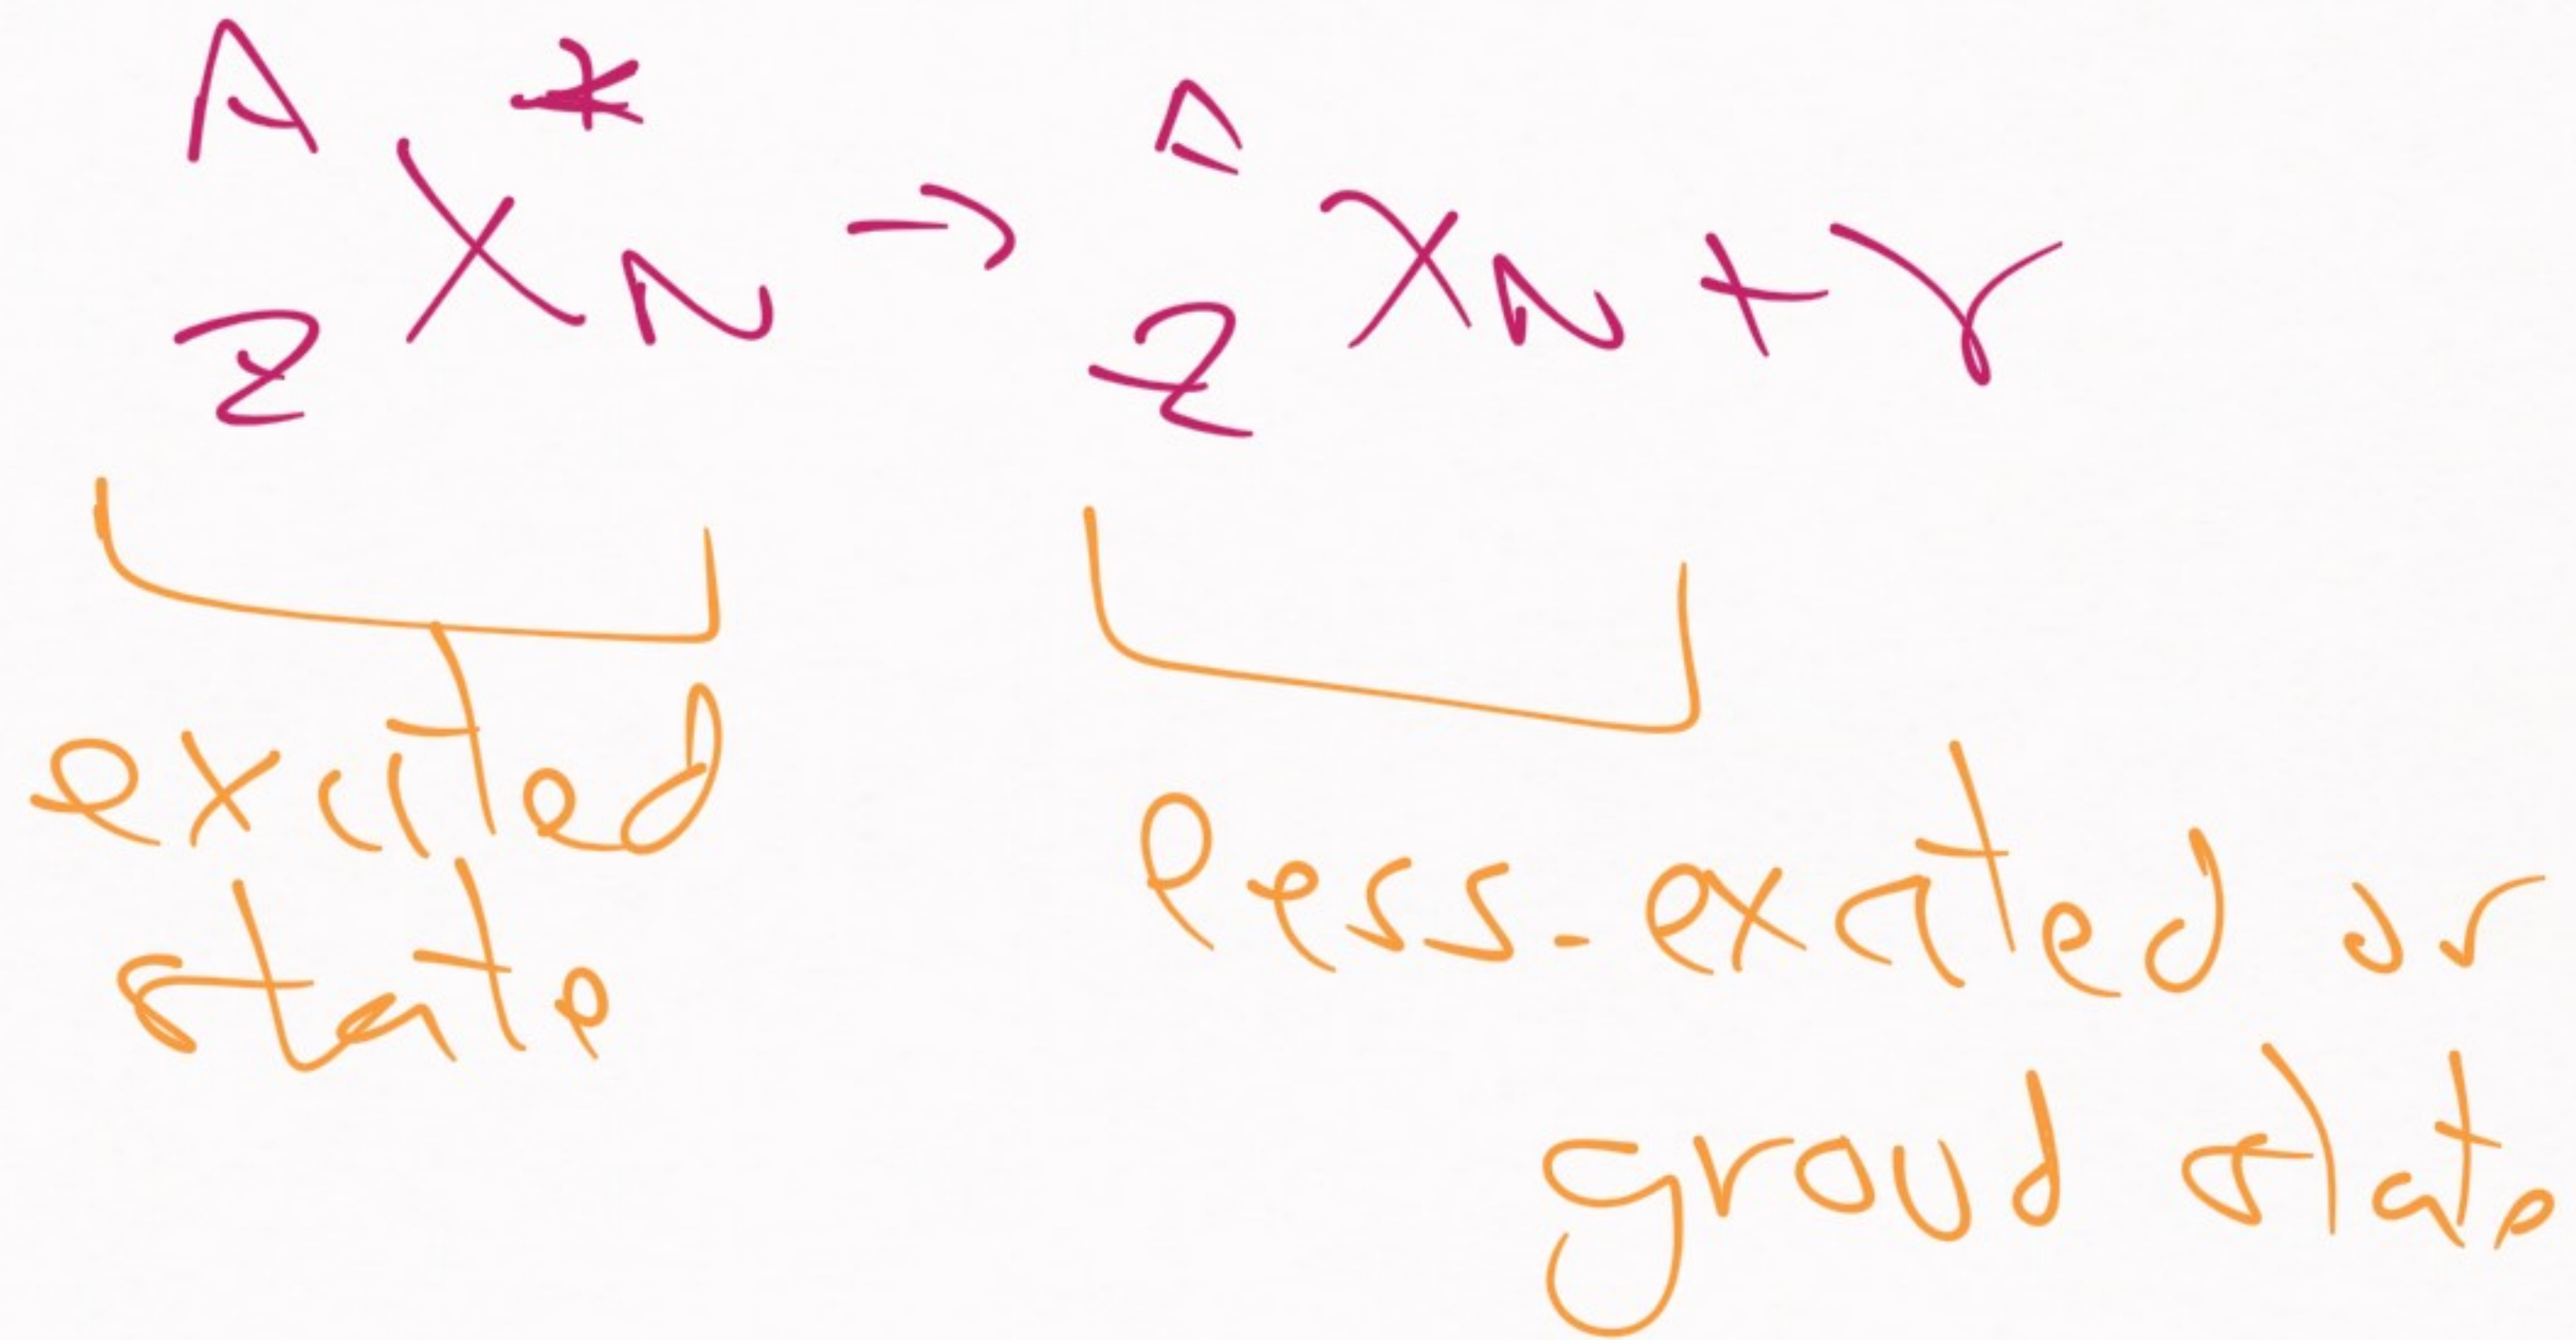 A * A
X N → X N + γ
Z Z
excited
state
less-excited or
groud state